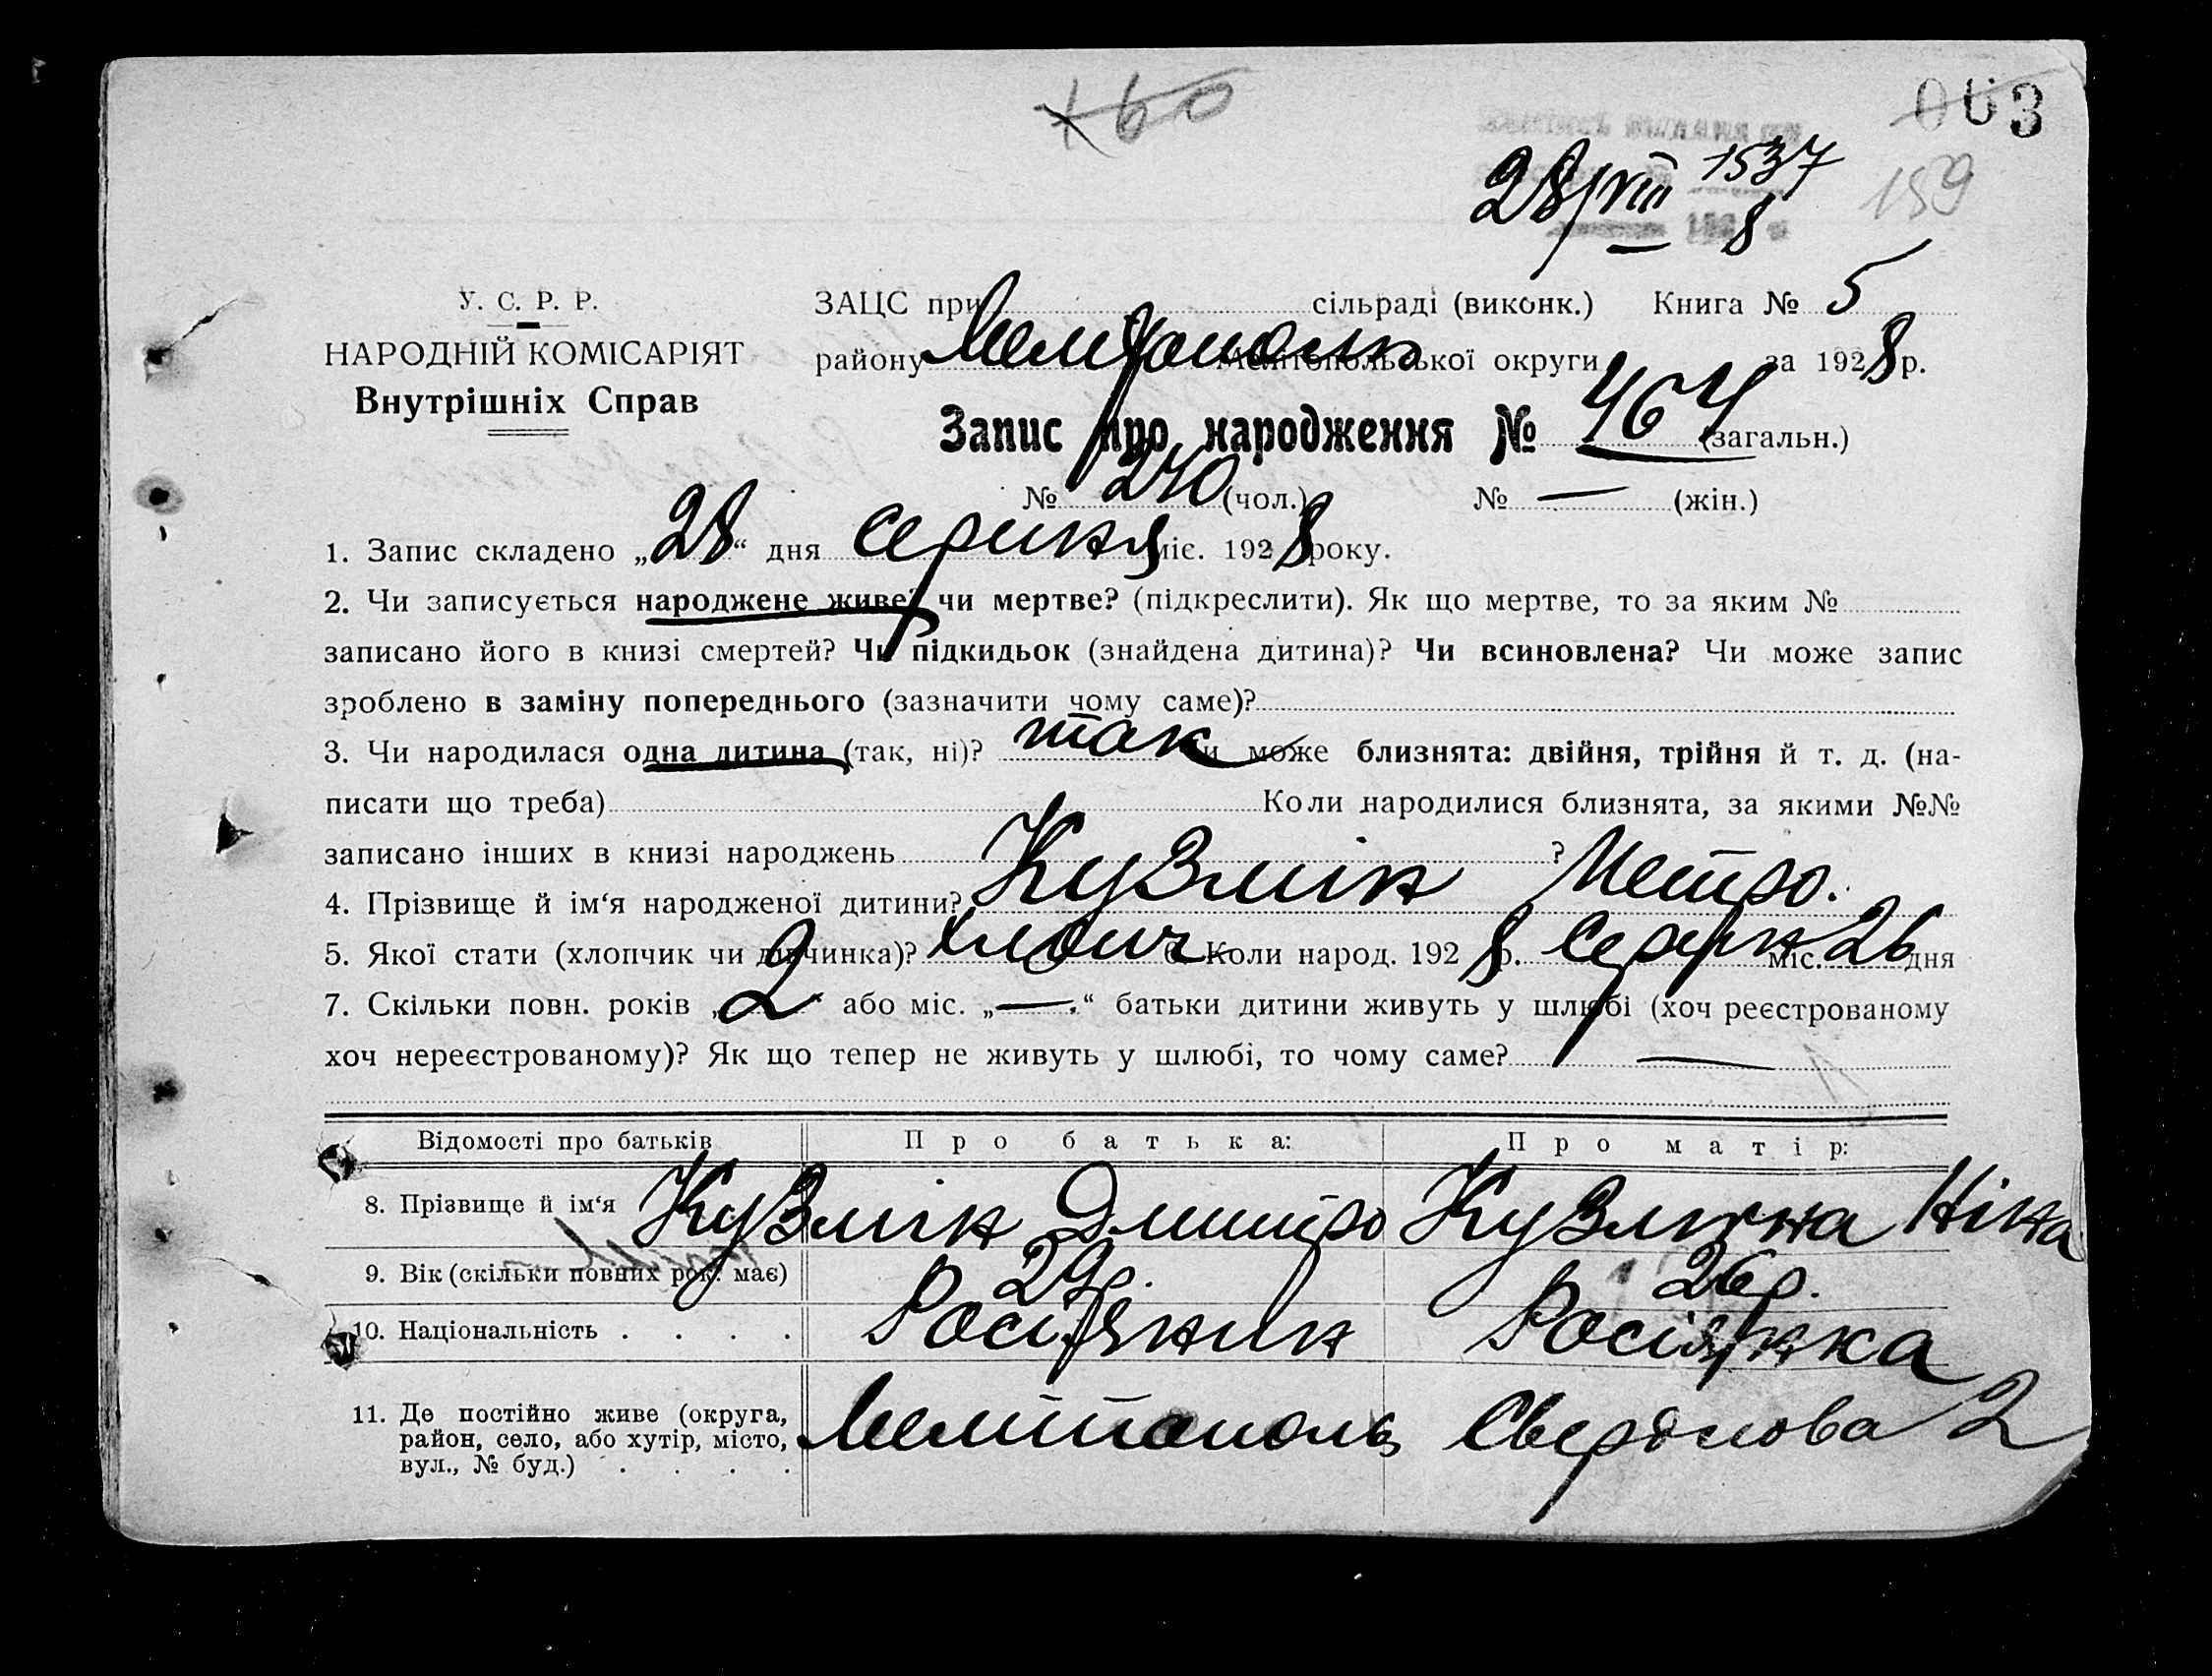 160
063
28/VIII 1537
8
159
У. С. Р. Р.
НАРОДНІЙ КОМІСАРІЯТ
Внутрішніх Справ
ЗАЦС при сільраді (виконк.) Книга № 5
району Мелітополь Мелітопольської округи за 1928 р.
Запис про народження № 464 (загальн.)
№ 240 (чол.) № — (жін.)
1. Запис складено „28“ дня серпня міс. 1928 року.
2. Чи записується народжене живе? чи мертве? (підкреслити). Як що мертве, то за яким №
записано його в книзі смертей? Чи підкидьок (знайдена дитина)? Чи всиновлена? Чи може запис
зроблено в заміну попереднього (зазначити чому саме)?
3. Чи народилася одна дитина (так, ні)? так Чи може близнята: двійня, трійня й т. д. (на-
писати що треба) Коли народилися близнята, за якими №№
записано інших в книзі народжень ?
4. Прізвище й ім‘я народженої дитини? Кузмін
5. Якої стати (хлопчик чи дівчинка)? хлопч 6. Коли народ. 1928 р. Серпн міс. 26 дня
7. Скільки повн. років „2“ або міс. „—“ батьки дитини живуть у шлюбі (хоч реєстрованому
хоч нереєстрованому)? Як що тепер не живуть у шлюбі, то чому саме? —
Відомості про батьків Про батька: Про матір:
8. Прізвище й ім‘я Кузмін Дмитро Кузміна Ніна
9. Вік (скільки повних рок. має) 29р. 26р.
10. Національність . . . . Росіянин Росіянка
11. Де постійно живе (округа,
район, село, або хутір, місто,
вул., № буд.) . . . .
Мелітополь Свердлова 2